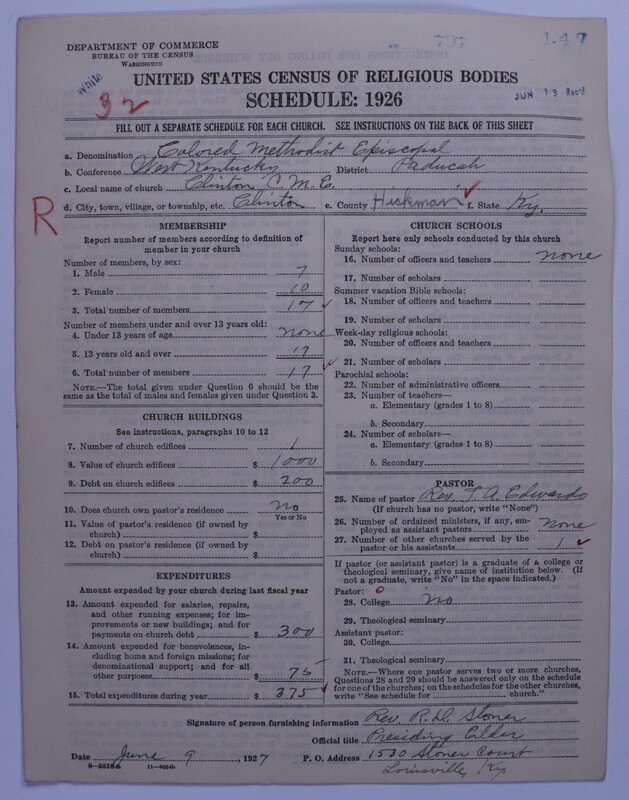 797
147
DEPARTMENT OF COMMERCE
BUREAU OF THE CENSUS
WASHINGTON
White
32
UNITED STATES CENSUS OF RELIGIOUS BODIES
SCHEDULE: 1926
JUN 13 Rec'd
FILL OUT A SEPARATE SCHEDULE FOR EACH CHURCH. SEE INSTRUCTIONS ON THE BACK OF THIS SHEET
a. Denomination Colored Methodist Episcopal
b. Conference West Kentucky District Paducah
c. Local name of church Clinton C. M. E.
d. City, town, village, or township, etc. Clinton e. County Hickman f. State Ky.
R
MEMBERSHIP
Report number of members according to definition of
member in your church
Number of members, by sex:
1. Male 7
2. Female 10
3. Total number of members 17
Number of members under and over 13 years old:
4. Under 13 years of age none
5. 13 years old and over 17
6. Total number of members 17
NOTE.—The total given under Question 6 should be
same as the total of males and females given under Question 3.
CHURCH BUILDINGS
See instructions, paragraphs 10 to 12
7. Number of church edifices 1
8. Value of church edifices $ 1000
9. Debt on church edifices $ 200
10. Does church own pastor's residence? No
Yes or No
11. Value of pastor's residence (if owned by
church) $
12. Debt on pastor's residence (if owned by
church) $
EXPENDITURES
Amount expended by your church during last fiscal year
13. Amount expended for salaries, repairs,
and other running expenses; for im-
provements or new buildings; and for
payments on church debt $ 300
14. Amount expended for benevolences, in-
cluding home and foreign missions; for
denominational support; and for all
other purposes $ 75
15. Total expenditures during year $ 375
CHURCH SCHOOLS
Report here only schools conducted by this church
Sunday schools:
16. Number of officers and teachers none
17. Number of scholars
Summer vacation Bible schools:
18. Number of officers and teachers
19. Number of scholars
Week-day religious schools:
20. Number of officers and teachers
21. Number of scholars
Parochial schools:
22. Number of administrative officers
23. Number of teachers—
a. Elementary (grades 1 to 8)
b. Secondary
24. Number of scholars—
a. Elementary (grades 1 to 8)
b. Secondary
PASTOR
25. Name of pastor Rev. T. A. Edwards
(If church has no pastor, write "None")
26. Number of ordained ministers, if any, em-
ployed as assistant pastors none
27. Number of other churches served by the
pastor or his assistants 1
If pastor (or assistant pastor) is a graduate of a college or
theological seminary, give name of institution below. (If
not a graduate, write "No" in the space indicated.)
Pastor: 0
28. College No
29. Theological seminary
Assistant pastor:
30. College
31. Theological seminary
NOTE.—Where one pastor serves two or more churches,
Questions 28 and 29 should be answered only on the schedule
for one of the churches; on the schedules for the other churches,
write "See schedule for church."
Signature of person furnishing information Rev. R. D. Stoner
Official title Presiding Elder
Date June 9, 1927 P. O. Address 1530 Stoner Court
Louisville, Ky.